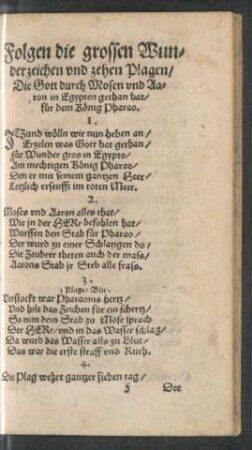 Folgen die grossen Wun-
derzeichen vnd zehen Plagen/
Die Gott durch Mosen vnd Aa-
ron in Egypten gethan hat/
für dem König Pharao.
1.
ITZund wölln wir nun heben an/
Erzelen was Gott hat gethan/
für Wunder gros in Egypto/
Am mechtigen König Pharao/
Den er mit seinem gantzen Heer/
Letzlich erseufft im roten Meer.
2.
Moses vnd Aaron alles that/
Wie in der HERr befohlen hat/
Wurffen den Stab für Pharao/
Der wurd zu einer Schlangen do/
Die Zeubrer theten auch der mass/
Aarons Stab jr Steb alle frass.
3.
1 Plage/ Blut.
Verstockt war Pharaonis hertz/
Vnd hilt das Zeichen für ein schertz/
So nim dein Stab zu Mose sprach
Der HERr/ vnd in das Wasser schlag/
Da wurd das Wasser alls zu Blut/
Das war die erste straff vnd Ruth.
4.
Die Plag wehrt gantzer sieben tag/
Der